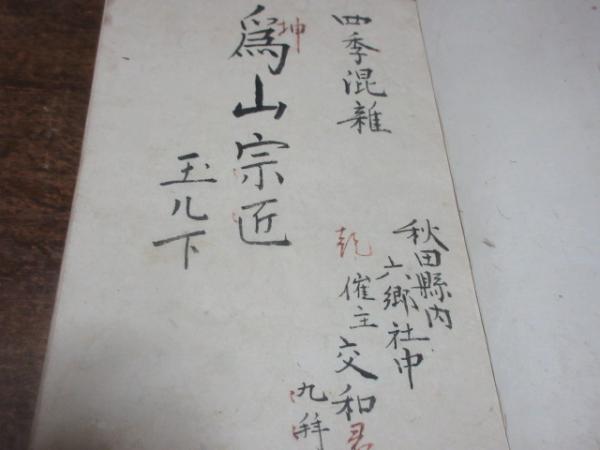 四季混雜
秋田縣内
六郷社中
乾 催主 交和君
九拜
坤
爲山宗匠
玉几下